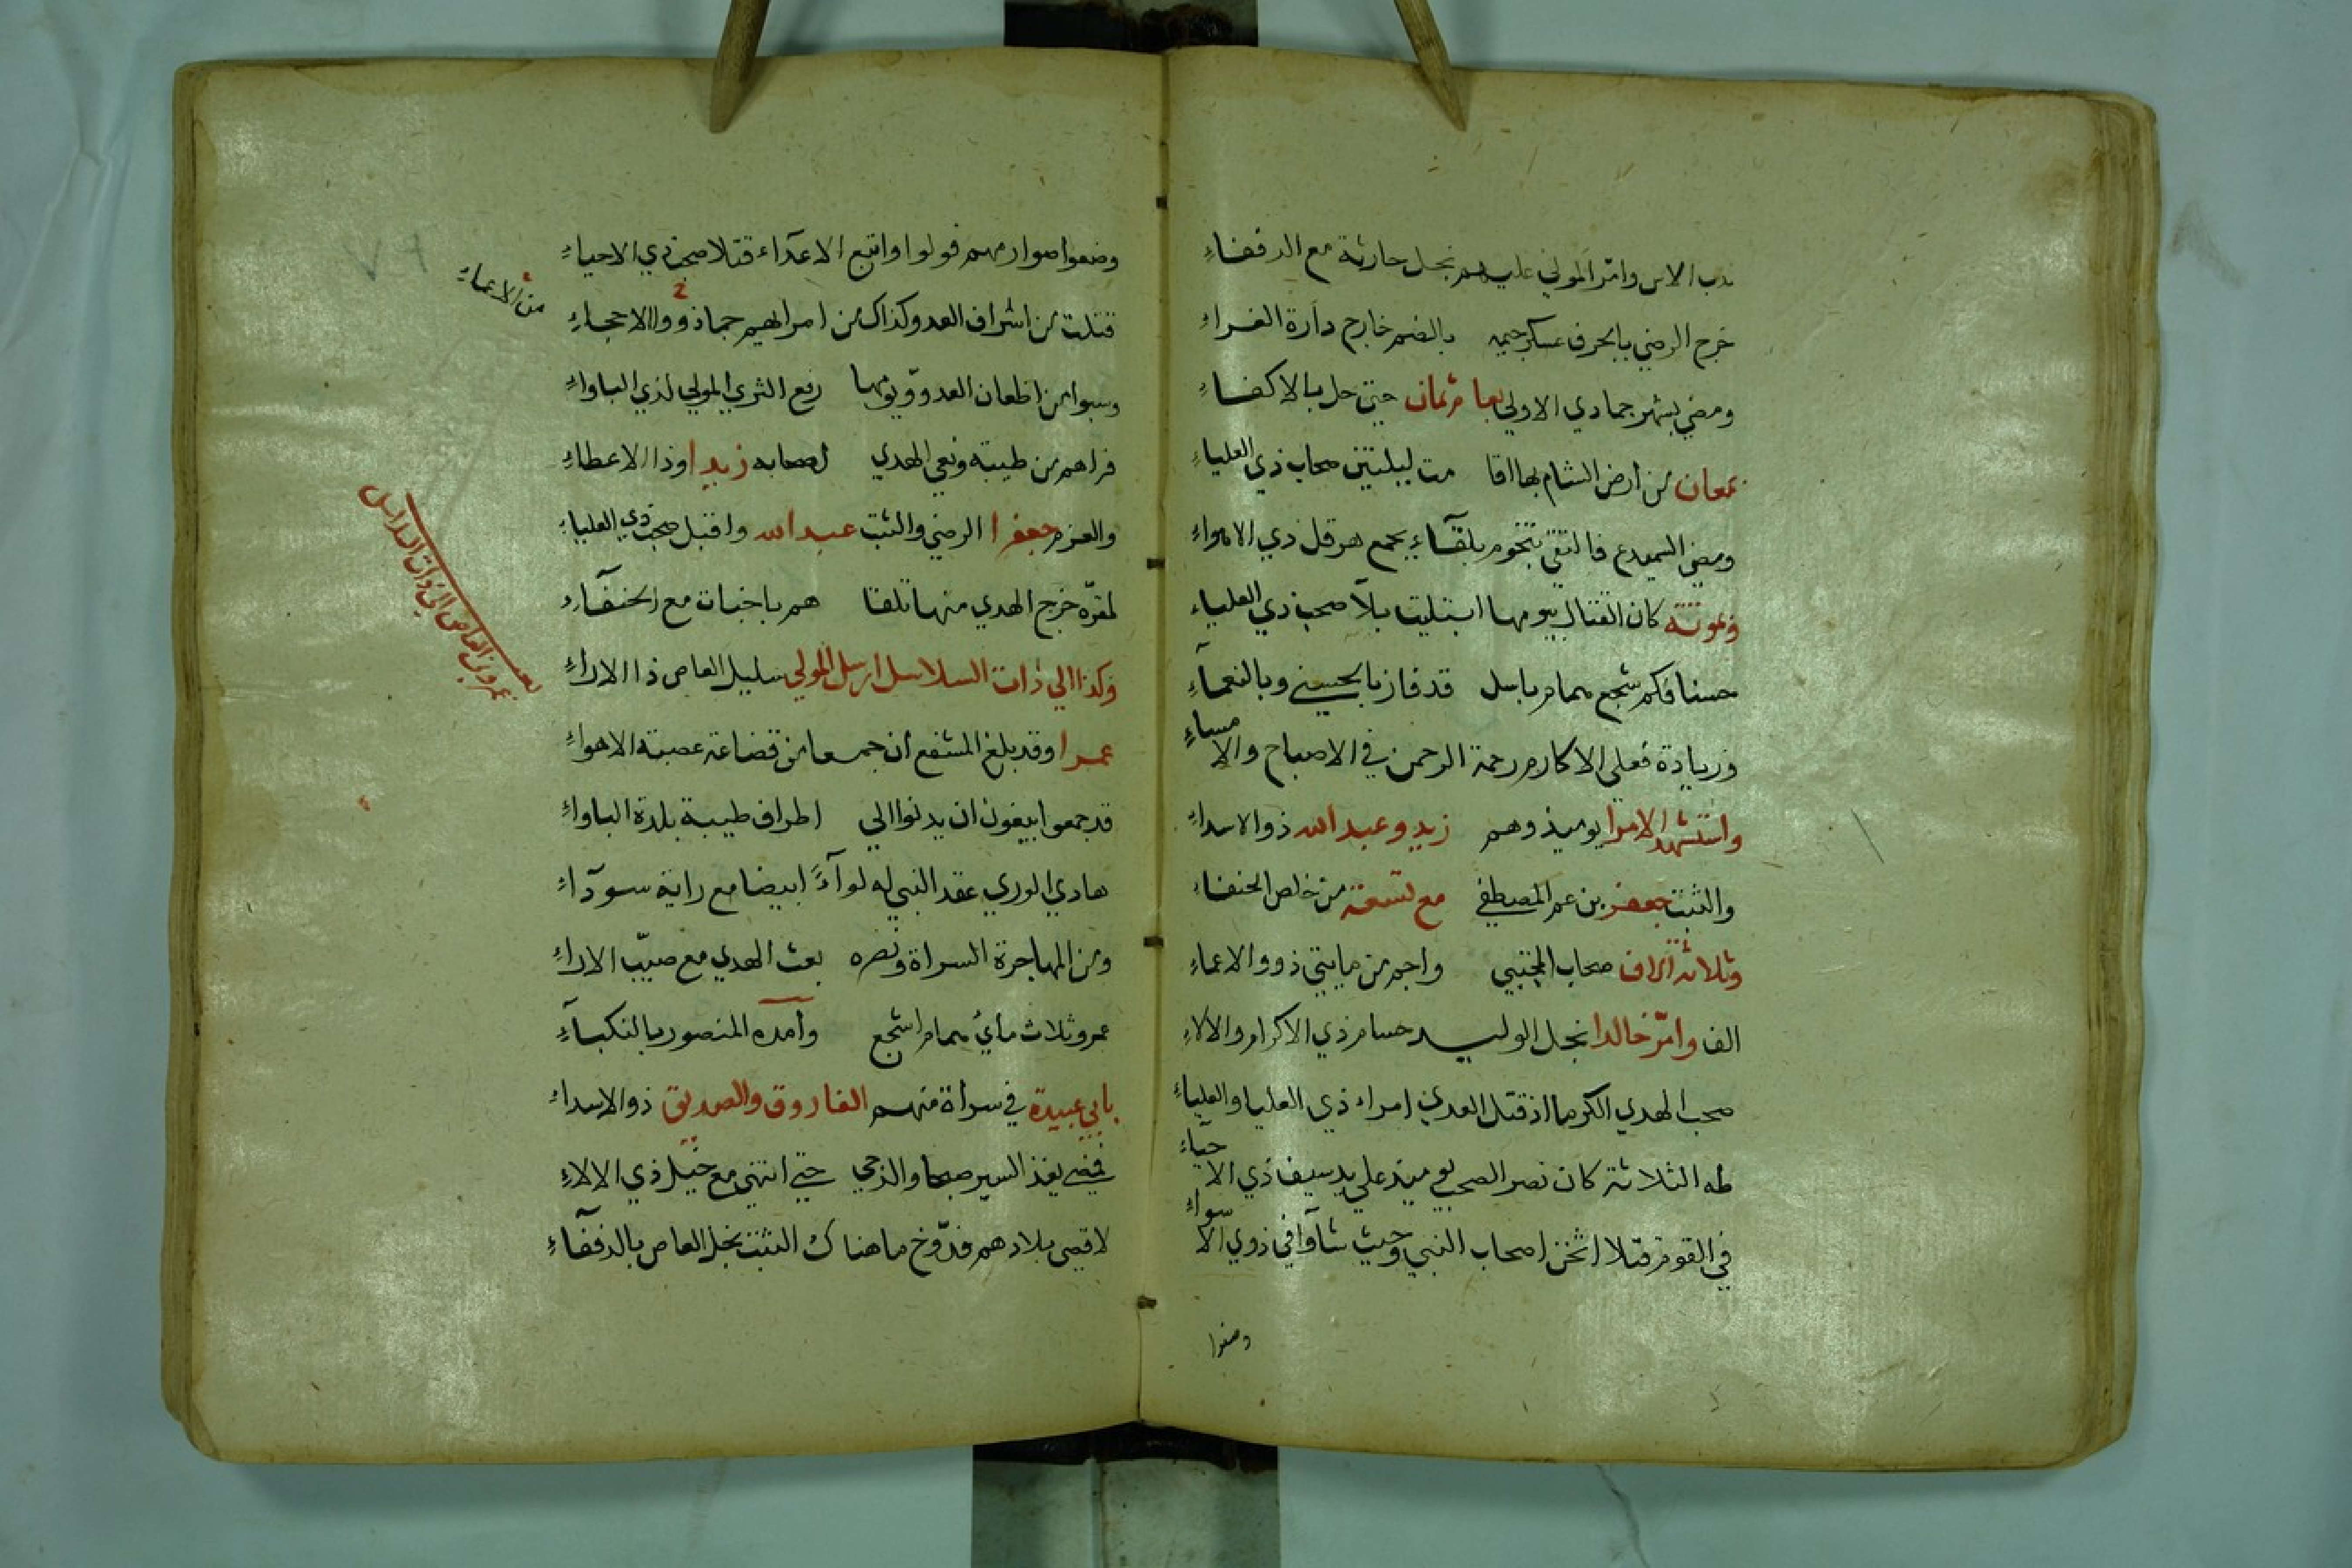 ندب الاس وامر المولي عليهم نجل حارثة مع الدفضاء
خرج الرضي بالحرف عسكر حيه بالضم خارج دارة الغراء
ومضي بشهر جمادي الاولي بعام ثمان حتي حل بالاكفاء
بمعان من أرض الشام بها اقا مت ليلتين صحاب ذي العلياء
ومضي السميدع فالتقي بتخوم بلقآء بجمع هرقل ذي الاهواء
وبموتة كان القتال بيومها ابتليت بلآ صحب ذي العلياء
حسنا فكم شجع همام باسل قد فاز بالحسني وبالنعمآء
وزيادة فعلي الاكارم رحمة الرحمن في الاصباح والامساء
واستشهد الامرا يوميذ وهم زيد وعبد الله ذو الاسداء
والثبت جعفر بن عم المصطفي مع تسعة من خلص الحنفاء
وثلاثة آلاف صحاب المجتبي واجم من مايتي ذوو الاعماء
الف وامّر خالدا نجل الوليد حسام ذي الاكرام والالاء
صحب الهدي الكرما اذ قتل العدي امراء ذي العليا والعلياء
طه الثلاثة كان نصر الصحب يوميذ علي يد سيف ذي الاحياء
في القوم قتلا اثخن اصحاب النبي وحيث شآوا في ذوي الاسواء
وضعوا
وضعوا صوارمهم فولوا واتبع الاعدآء قتلا صحب ذي الاحياء
قتلت من اشراف العدو وكذاك من امرالهيم جما ذووا الاحجاء
من الاعماء
وسبوا من اظعان العدو ويومها رفع الثري المولي لذي الباواء
فراهم من طيبة ونعي الهدي لصحابه زيدا وذا الاعطاء
والعزم جعفرا الرضي والثبت عبد الله واقبل صحب ذي العلياء
لمقرّه خرج الهدي منها تلقا هم باخبات مع الحنفآء
وكذا الي ذات السلاسل ارسل المولي سليل العاص ذا الاراء
بعث عمرو بن العاص الي ذات السلاسل
عمرا وقد بلغ المشفع أن جمعا من قضاعة عصبة الاهواء
قد جمعوا يبغون ان يدنوا الي اطراف طيبة بلدة الباواء
هادي الوري عقد النبي له لوآءً ابيضا مع راية سودآء
ومن المهاجرة السراة ونصره بعث الهدي مع صيّب الاراء
عمرو ثلاث مأي همام اشجع وأمده المنصور بالنكبآء
بابي عبيدة في سراة منهم الفاروق والصديق ذو الاسداء
فمضي يغذ السير صبحا والدجي حتي انتهي مع خيل ذي الالاء
لاقصي بلادهم فدّوخ ما هناك الثبت نجل العاص بالدفقآء